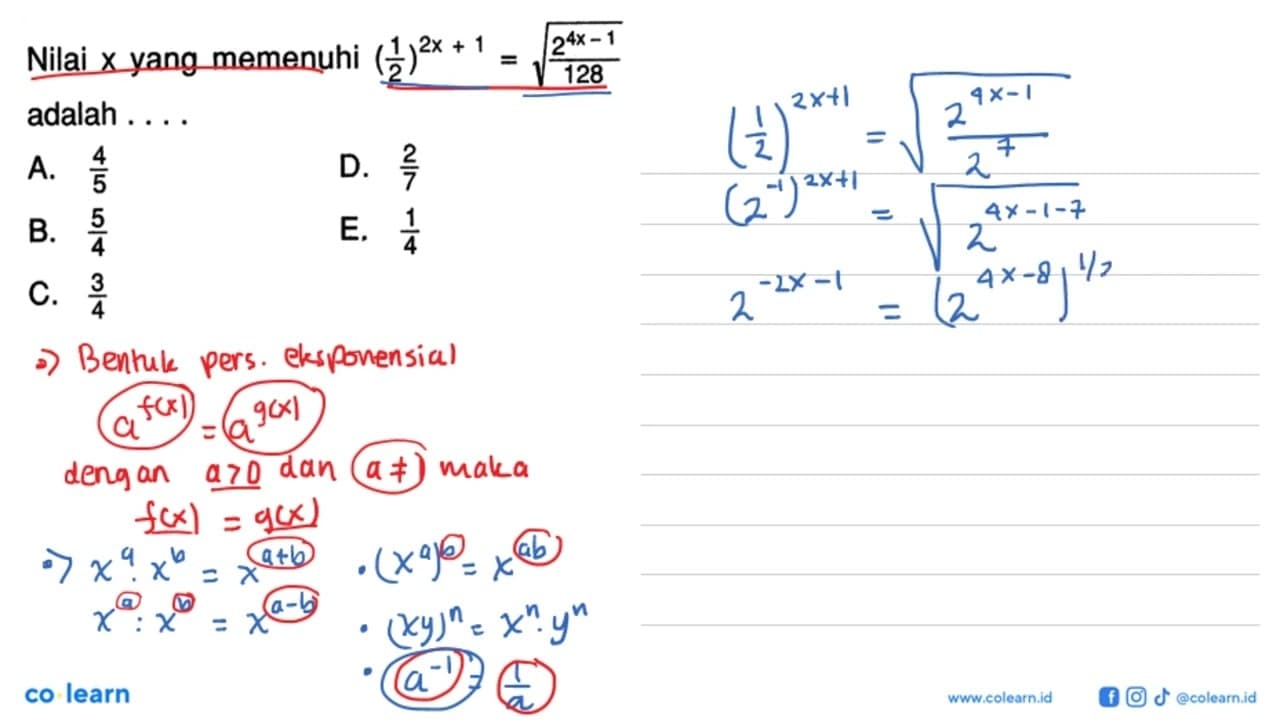 Nilai x yang memenuhi (1/2)^(2x + 1) = √(2^(4x – 1)/128)
adalah . . . .
A. 4/5
B. 5/4
C. 3/4
D. 2/7
E. 1/4
=> Bentuk pers. eksponensial
a^f(x) = a^g(x)
dengan a>0 dan a ≠ 1 maka
f(x) = g(x)
=> x^a . x^b = x^(a+b)
x^a : x^b = x^(a-b)
• (x^a)^b = x^(ab)
• (xy)^n = x^n . y^n
• a^(-1) = 1/a
(1/2)^(2x+1) = √(2^(4x-1)/2^7)
(2^(-1))^(2x+1) = √(2^(4x-1-7))
2^(-2x-1) = (2^(4x-8))^(1/2)
co learn
www.colearn.id @colearn.id